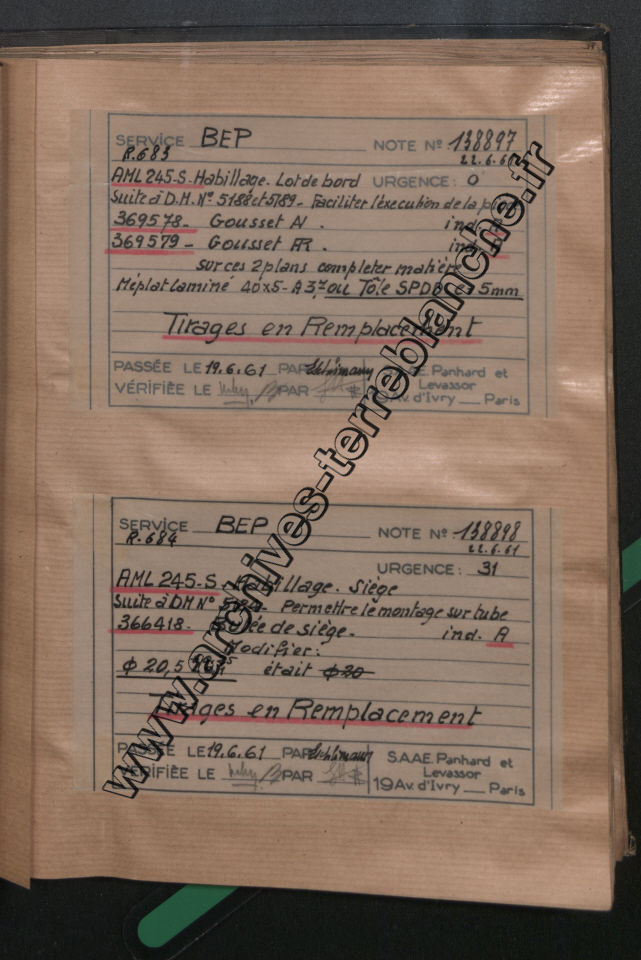 SERVICE BEP NOTE Nº 138897
R.683 22.6.61
AML 245-S. Habillage. Lot de bord URGENCE: 0
Suite à D.M. Nº 5188 et 5189. Faciliter l'éxecution de la
369578 - Gousset AV. ind.
369579 - Gousset AR. ind.
sur ces 2 plans completer matière
Méplat laminé 40x5 - A37 ou Tôle SPDB 5mm
Tirages en Remplacement
PASSÉE LE 19.6.61 PAR Panhard et
Levassor
VÉRIFIÉE LE PAR 19 Av. d'Ivry ___ Paris
SERVICE BEP NOTE Nº 138898
R.684 22.6.61
URGENCE: 31
AML 245-S. Habillage. Siège
Suite à DM Nº Permettre le montage sur tube
366418. de siège. ind. A
Modifier:
φ 20,5 était φ 20
Tirages en Remplacement
PASSÉE LE 19.6.61 PAR S.A.A.E. Panhard et
Levassor
VÉRIFIÉE LE PAR 19 Av. d'Ivry ___ Paris
www.archives-terreblanche.fr